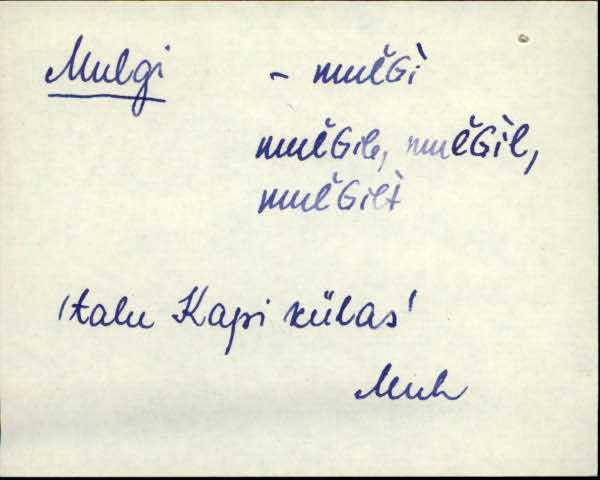 Mulgi - mul̆Gì
mul̆Gile, mul̆Gìl,
mul̆Gilt
'talu Kapi külas'
Muh